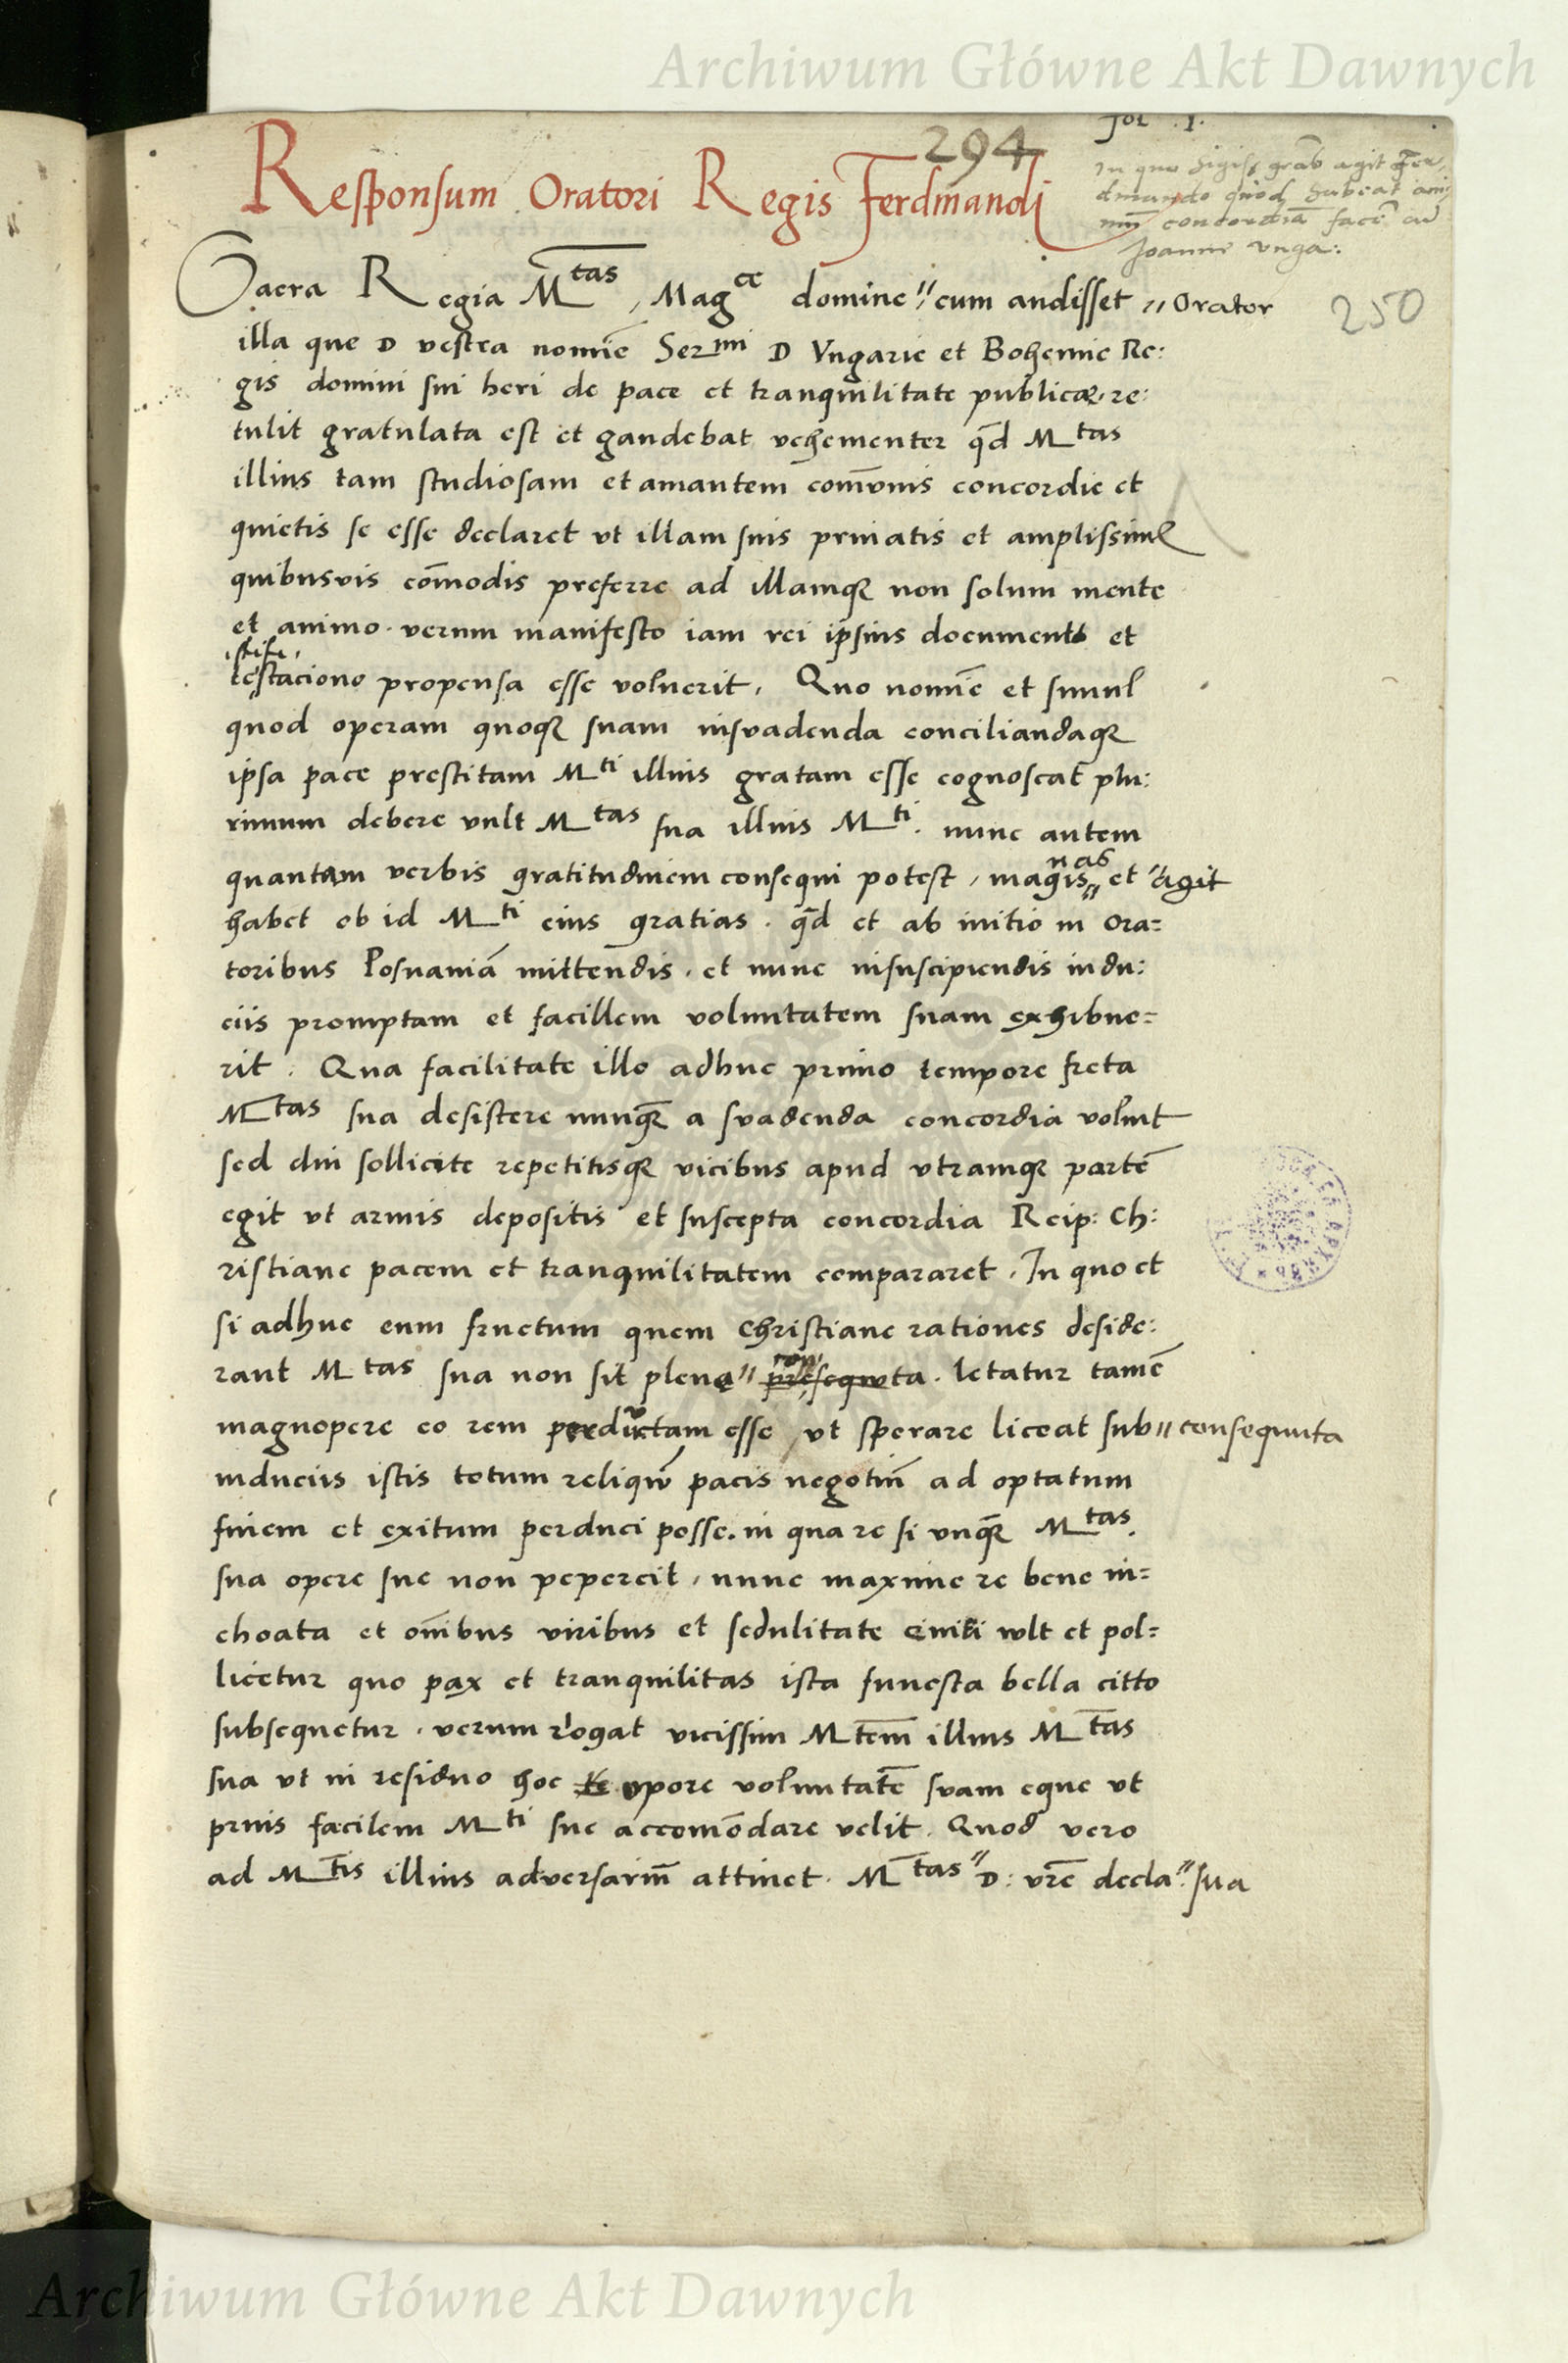 Archiwum Główne Akt Dawnych
294
Responsum Oratori Regis Ferdinandi
In quo Sigis: gratias agit Fer-
dinando quod habeat ani-
mum concordiam faci: cu
Joanne Vnga:
250
Sacra Regia Mtas, Magce domine // cum audisset // Orator
illa que D vestra nomīe Sermi D Vngarie et Bohemie Re:
gis domini sui heri de pace et tranquilitate publica re:
tulit gratulata est et gaudebat vehementer qd Mtas
illius tam studiosam et amantem comūnis concordie et
quietis se esse declaret vt illam suis priuatis et amplissimis
quibusvis cōmodis preferre ad illamque non solum mente
et animo verum manifesto iam rei ipsius documento et
testaciono propensa esse voluerit, Quo nomīe et simul
quod operam quoque suam insvadenda conciliandaque
ipsa pace prestitam Mti illius gratam esse cognoscat plu:
rimum debere vult Mtas sua illius Mti. nunc autem
quantam verbis gratitudinem consequi potest, magis // nas et // agit
habet ob id Mti eius gratias. qd et ab initio in Ora=
toribus Posnaniā mittendis, et nunc insuscipiendis indu:
ciis promptam et facillem voluntatem suam exhibue=
rit. Qua facilitate illo adhuc primo tempore freta
Mtas sua desistere nunque a svadenda concordia voluit
sed diu sollicite repetitisque vicibus apud vtramque partē
egit vt armis depositis et suscepta concordia Reip: Ch:
ristiane pacem et tranquilitatem compararet. In quo et
si adhuc eum fructum quem Christiane rationes deside:
rant Mtas sua non sit plene // presequuta. letatur tamē
magnopere eo rem perductam esse, vt sperare liceat sub // consequuta
induciis istis totum reliquū pacis negotiū ad optatum
finem et exitum perduci posse. in qua re si vnque Mtas
sua opere sue non pepercit, nunc maxime re bene in=
choata et oībus viribus et sedulitate eniti wlt et pol=
licetur quo pax et tranquilitas ista funesta bella citto
subsequetur. verum rogat vicissim Mtem illius Mtas
sua vt in residuo hoc opore voluntatē svam eque vt
prius facilem Mti sue accomōdare velit. Quod vero
ad Mtis illius adversariū attinet. Mtas // D: vrē decla: // sua
Archiwum Główne Akt Dawnych